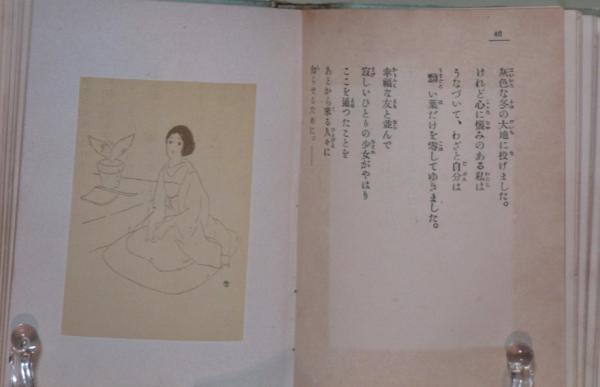 46
灰色な冬の大地に投げました。
けれど心に悩みのある私は
うなづいて、わざと自分は
い葉だけを零してゆきました。
幸福な友と並んで
寂しいひとりの少女がやはり
ここを通つたことを
あとから来る人々に
知らせるために。――